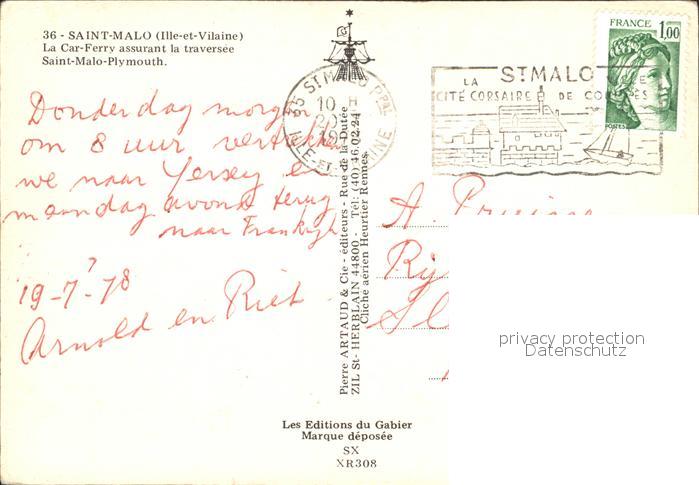 36 - SAINT-MALO (Ille-et-Vilaine)
La Car-Ferry assurant la traversée
Saint-Malo-Plymouth.
Donderdag morgen
om 8 uur vertrekken
we naar Yersey en
maandag avond terug
naar Frankrijk
19-7-78
Arnold en Riet
35 ST MALO PPAL
10 H
20
19
ILLE-ET- INE
ST MALO
LA
CITÉ CORSAIRE DE
FRANCE 1,00
POSTES
A.
Pierre ARTAUD & Cie - éditeurs - Rue de la Dutée
ZIL St-HERBLAIN 44800 - Tél: (40) 46.02.24
Cliché aérien Heurtier Rennes
privacy protection
Datenschutz
Les Editions du Gabier
Marque déposée
SX
XR308